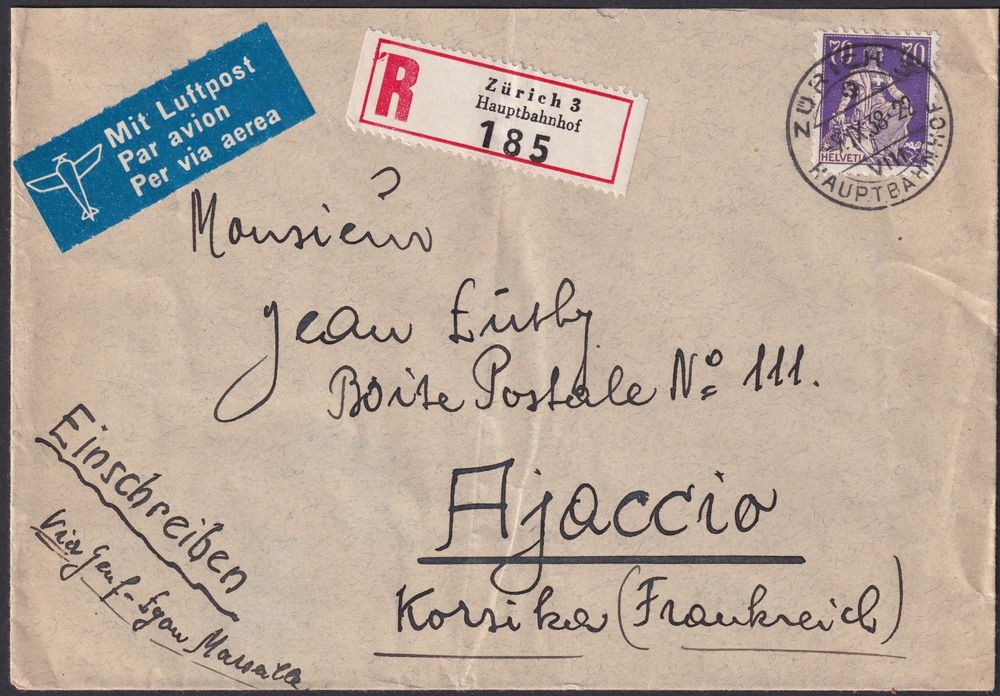 Mit Luftpost
Par avion
Per via aerea
R
Zürich 3
Hauptbahnhof
185
70 70
HELVETIA
ZÜRICH
HAUPTBAHNHOF
VIII
Monsieur
Jean
Boite Postale No 111.
Ajaccio
Korsika (Frankreich)
Einschreiben
via Genf - Lyon Marseille